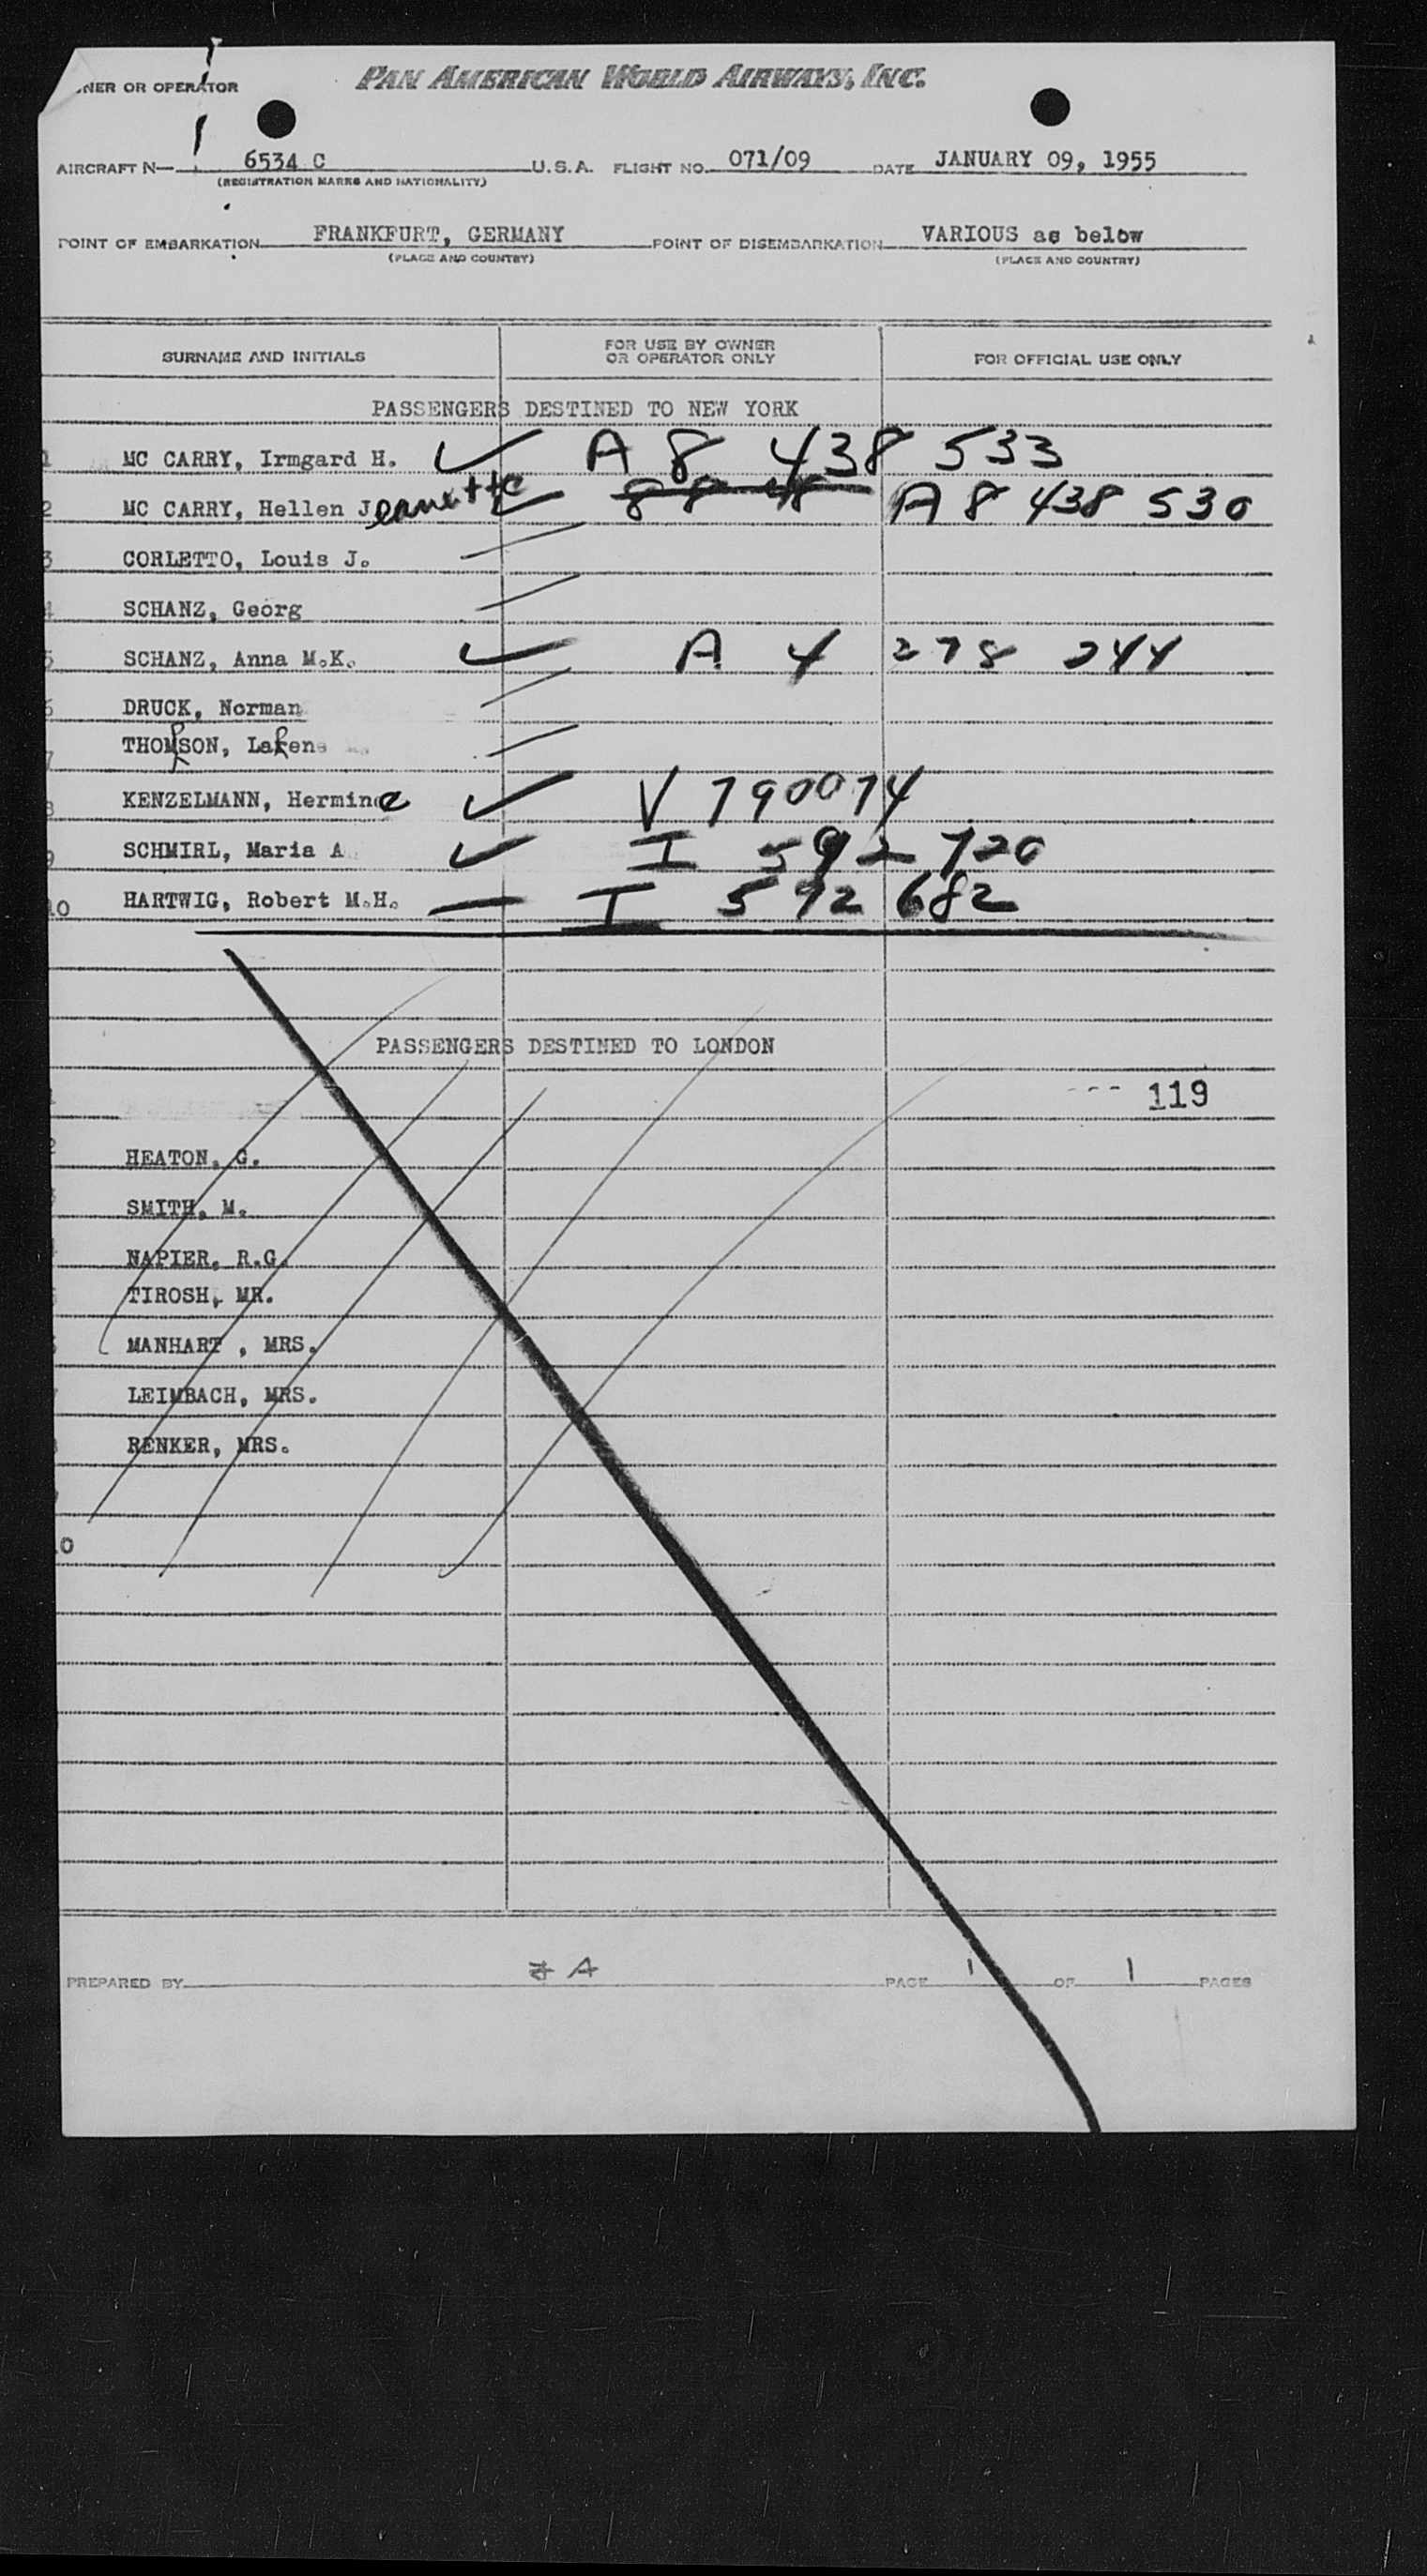 OWNER OR OPERATOR PAN AMERICAN WORLD AIRWAYS, INC.
AIRCRAFT N— 6534 C U.S.A. FLIGHT NO. 071/09 DATE JANUARY 09, 1955
(REGISTRATION MARKS AND NATIONALITY)
POINT OF EMBARKATION FRANKFURT, GERMANY POINT OF DISEMBARKATION VARIOUS as below
(PLACE AND COUNTRY) (PLACE AND COUNTRY)
SURNAME AND INITIALS FOR USE BY OWNER OR OPERATOR ONLY FOR OFFICIAL USE ONLY
PASSENGERS DESTINED TO NEW YORK
1 MC CARRY, Irmgard H. ✓ A 8 438 533
2 MC CARRY, Hellen Jeanette ✓ 88 48 A 8 438 530
3 CORLETTO, Louis J.
4 SCHANZ, Georg
5 SCHANZ, Anna M.K. ✓ A 4 278 244
6 DRUCK, Norman
7 THOMSON, La en
8 KENZELMANN, Hermine ✓ V 790074
9 SCHMIRL, Maria A ✓ I 592 720
10 HARTWIG, Robert M.H. — I 592 682
PASSENGERS DESTINED TO LONDON
1 --- 119
2 HEATON, G.
3 SMITH, M.
4 NAPIER, R.G.
5 TIROSH, MR.
6 MANHART , MRS.
7 LEIMBACH, MRS.
8 RENKER, MRS.
10
PREPARED BY PAGE 1 OF 1 PAGES